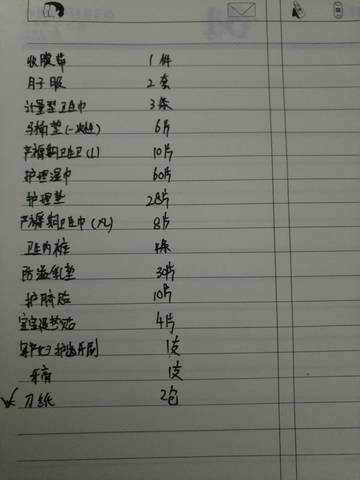 收腹带 1件
月子服 2套
计量型卫生巾 3条
马桶垫(一次性) 6片
产褥期卫生巾(L) 10片
护理湿巾 60片
护理垫 28片
产褥期卫生巾(XL) 8片
卫生内裤 4条
防溢乳垫 30片
护脐贴 10片
宝宝退热贴 4片
孕产妇护齿牙刷 1支
牙膏 1支
刀纸 2包